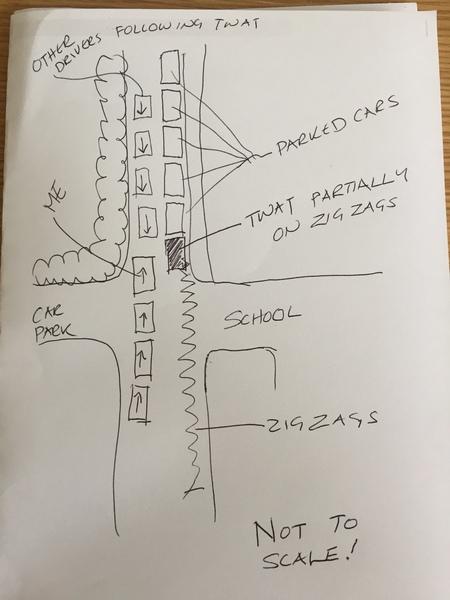 OTHER DRIVERS FOLLOWING TWAT
PARKED CARS
ME
TWAT PARTIALLY
ON ZIG ZAGS
CAR
PARK
SCHOOL
ZIG ZAGS
NOT TO
SCALE!